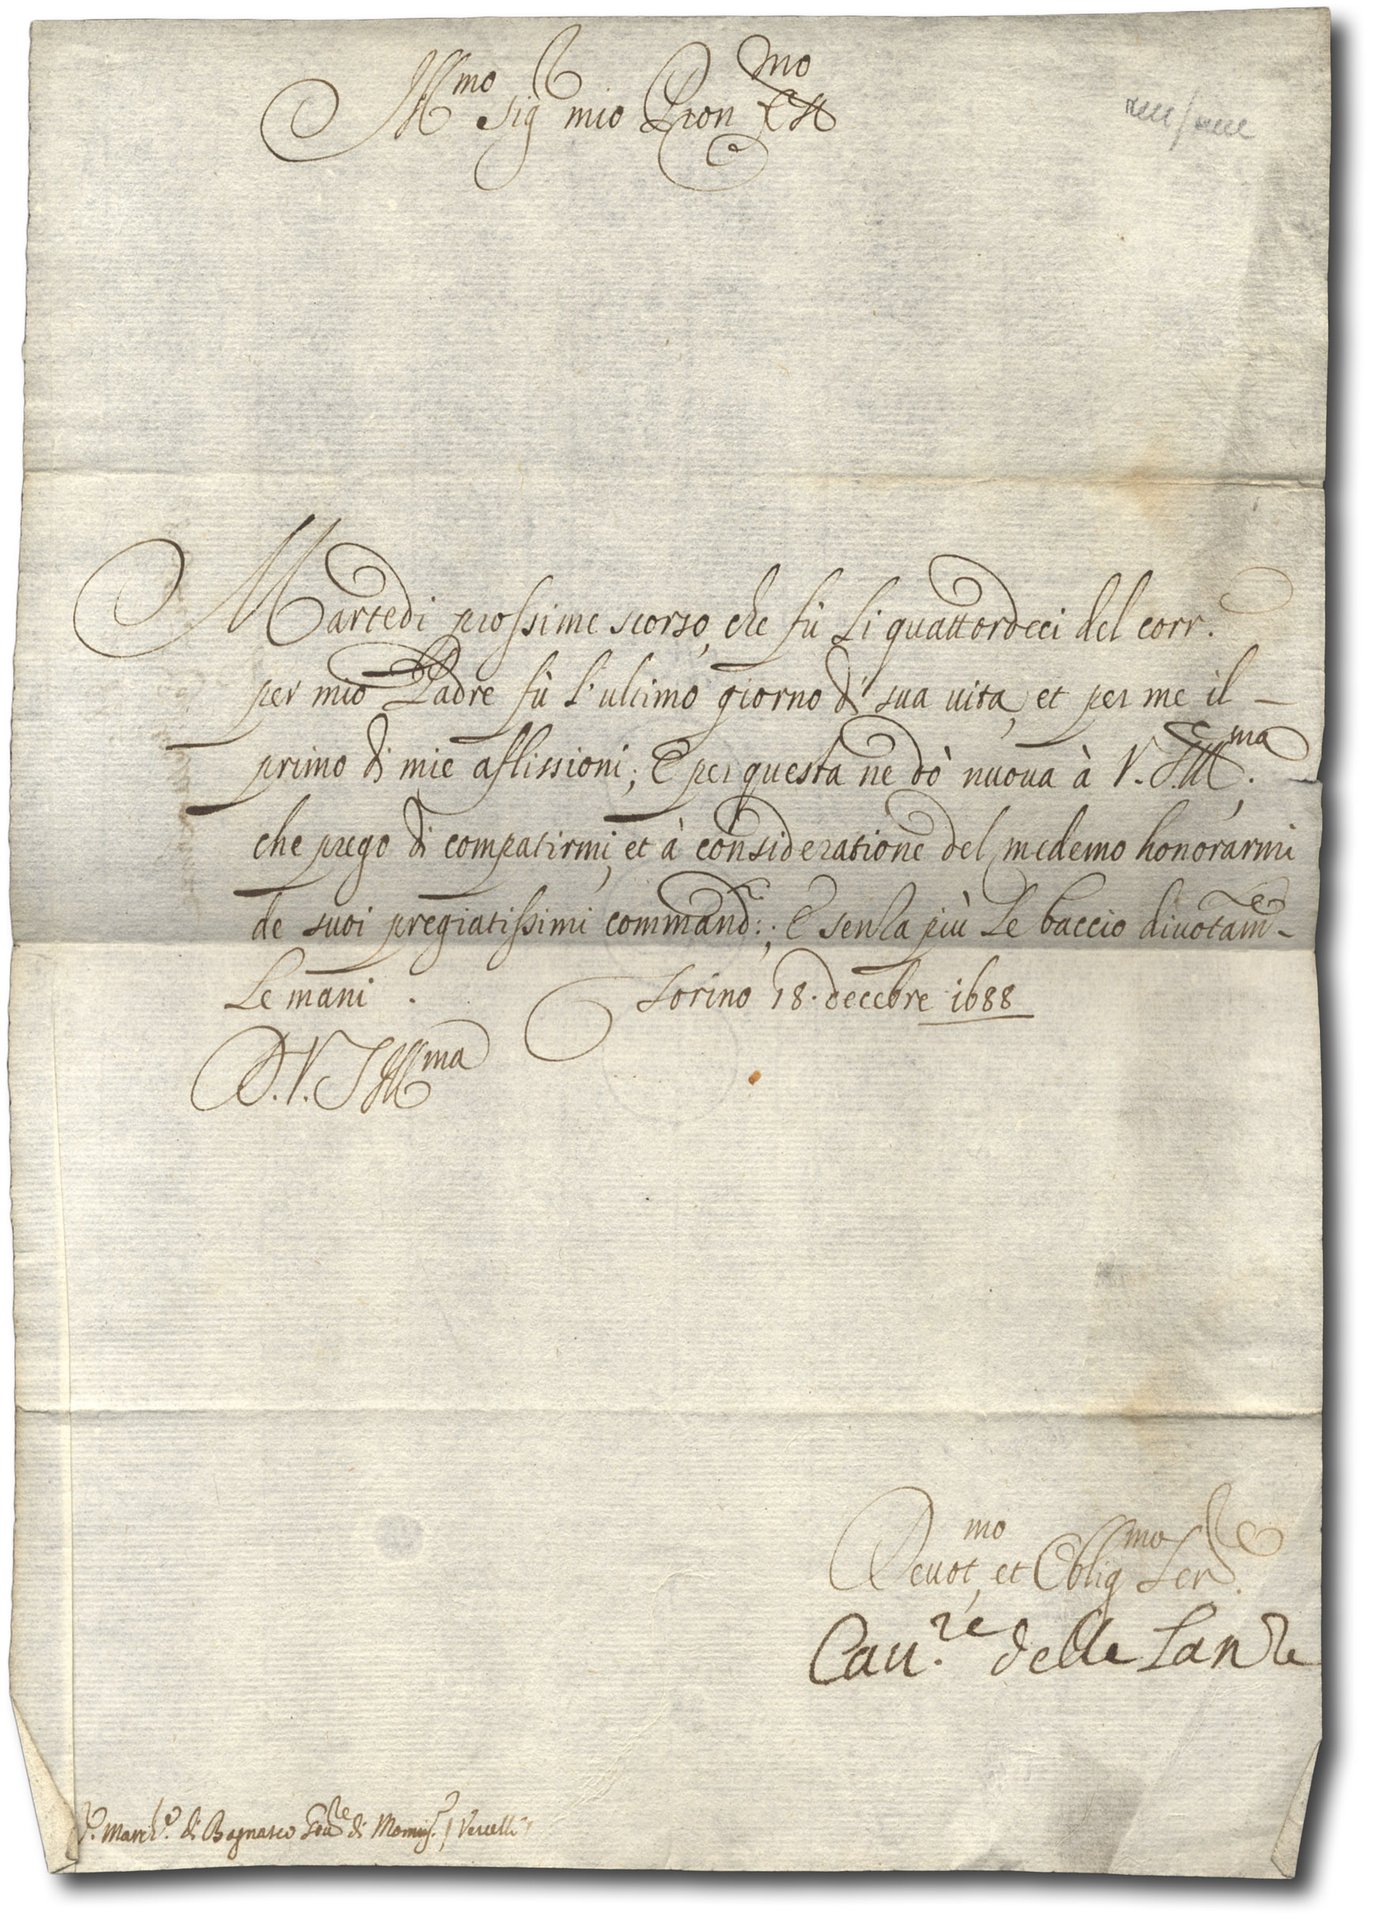 Ill.mo Sig.r mio Pron Col.mo
Martedi prossime scorso, che fù li quattordeci del corr.
per mio Padre fù l'ultimo giorno di sua vita, et per me il -
primo di mie aflissioni; E per questa ne dò nuova à V. S. Ill.ma
che prego di compatirmi, et à consideratione del medemo honorarmi
de suoi pregiatissimi command.i; E senza più le baccio divotam.e
le mani. Torino 18. decebre 1688
D. V. S. Ill.ma
Devot.mo et Oblig.mo Ser.re
Cau.re delle Lanze
S.r March.e di Bagnasco Gou.re di / Vercelli